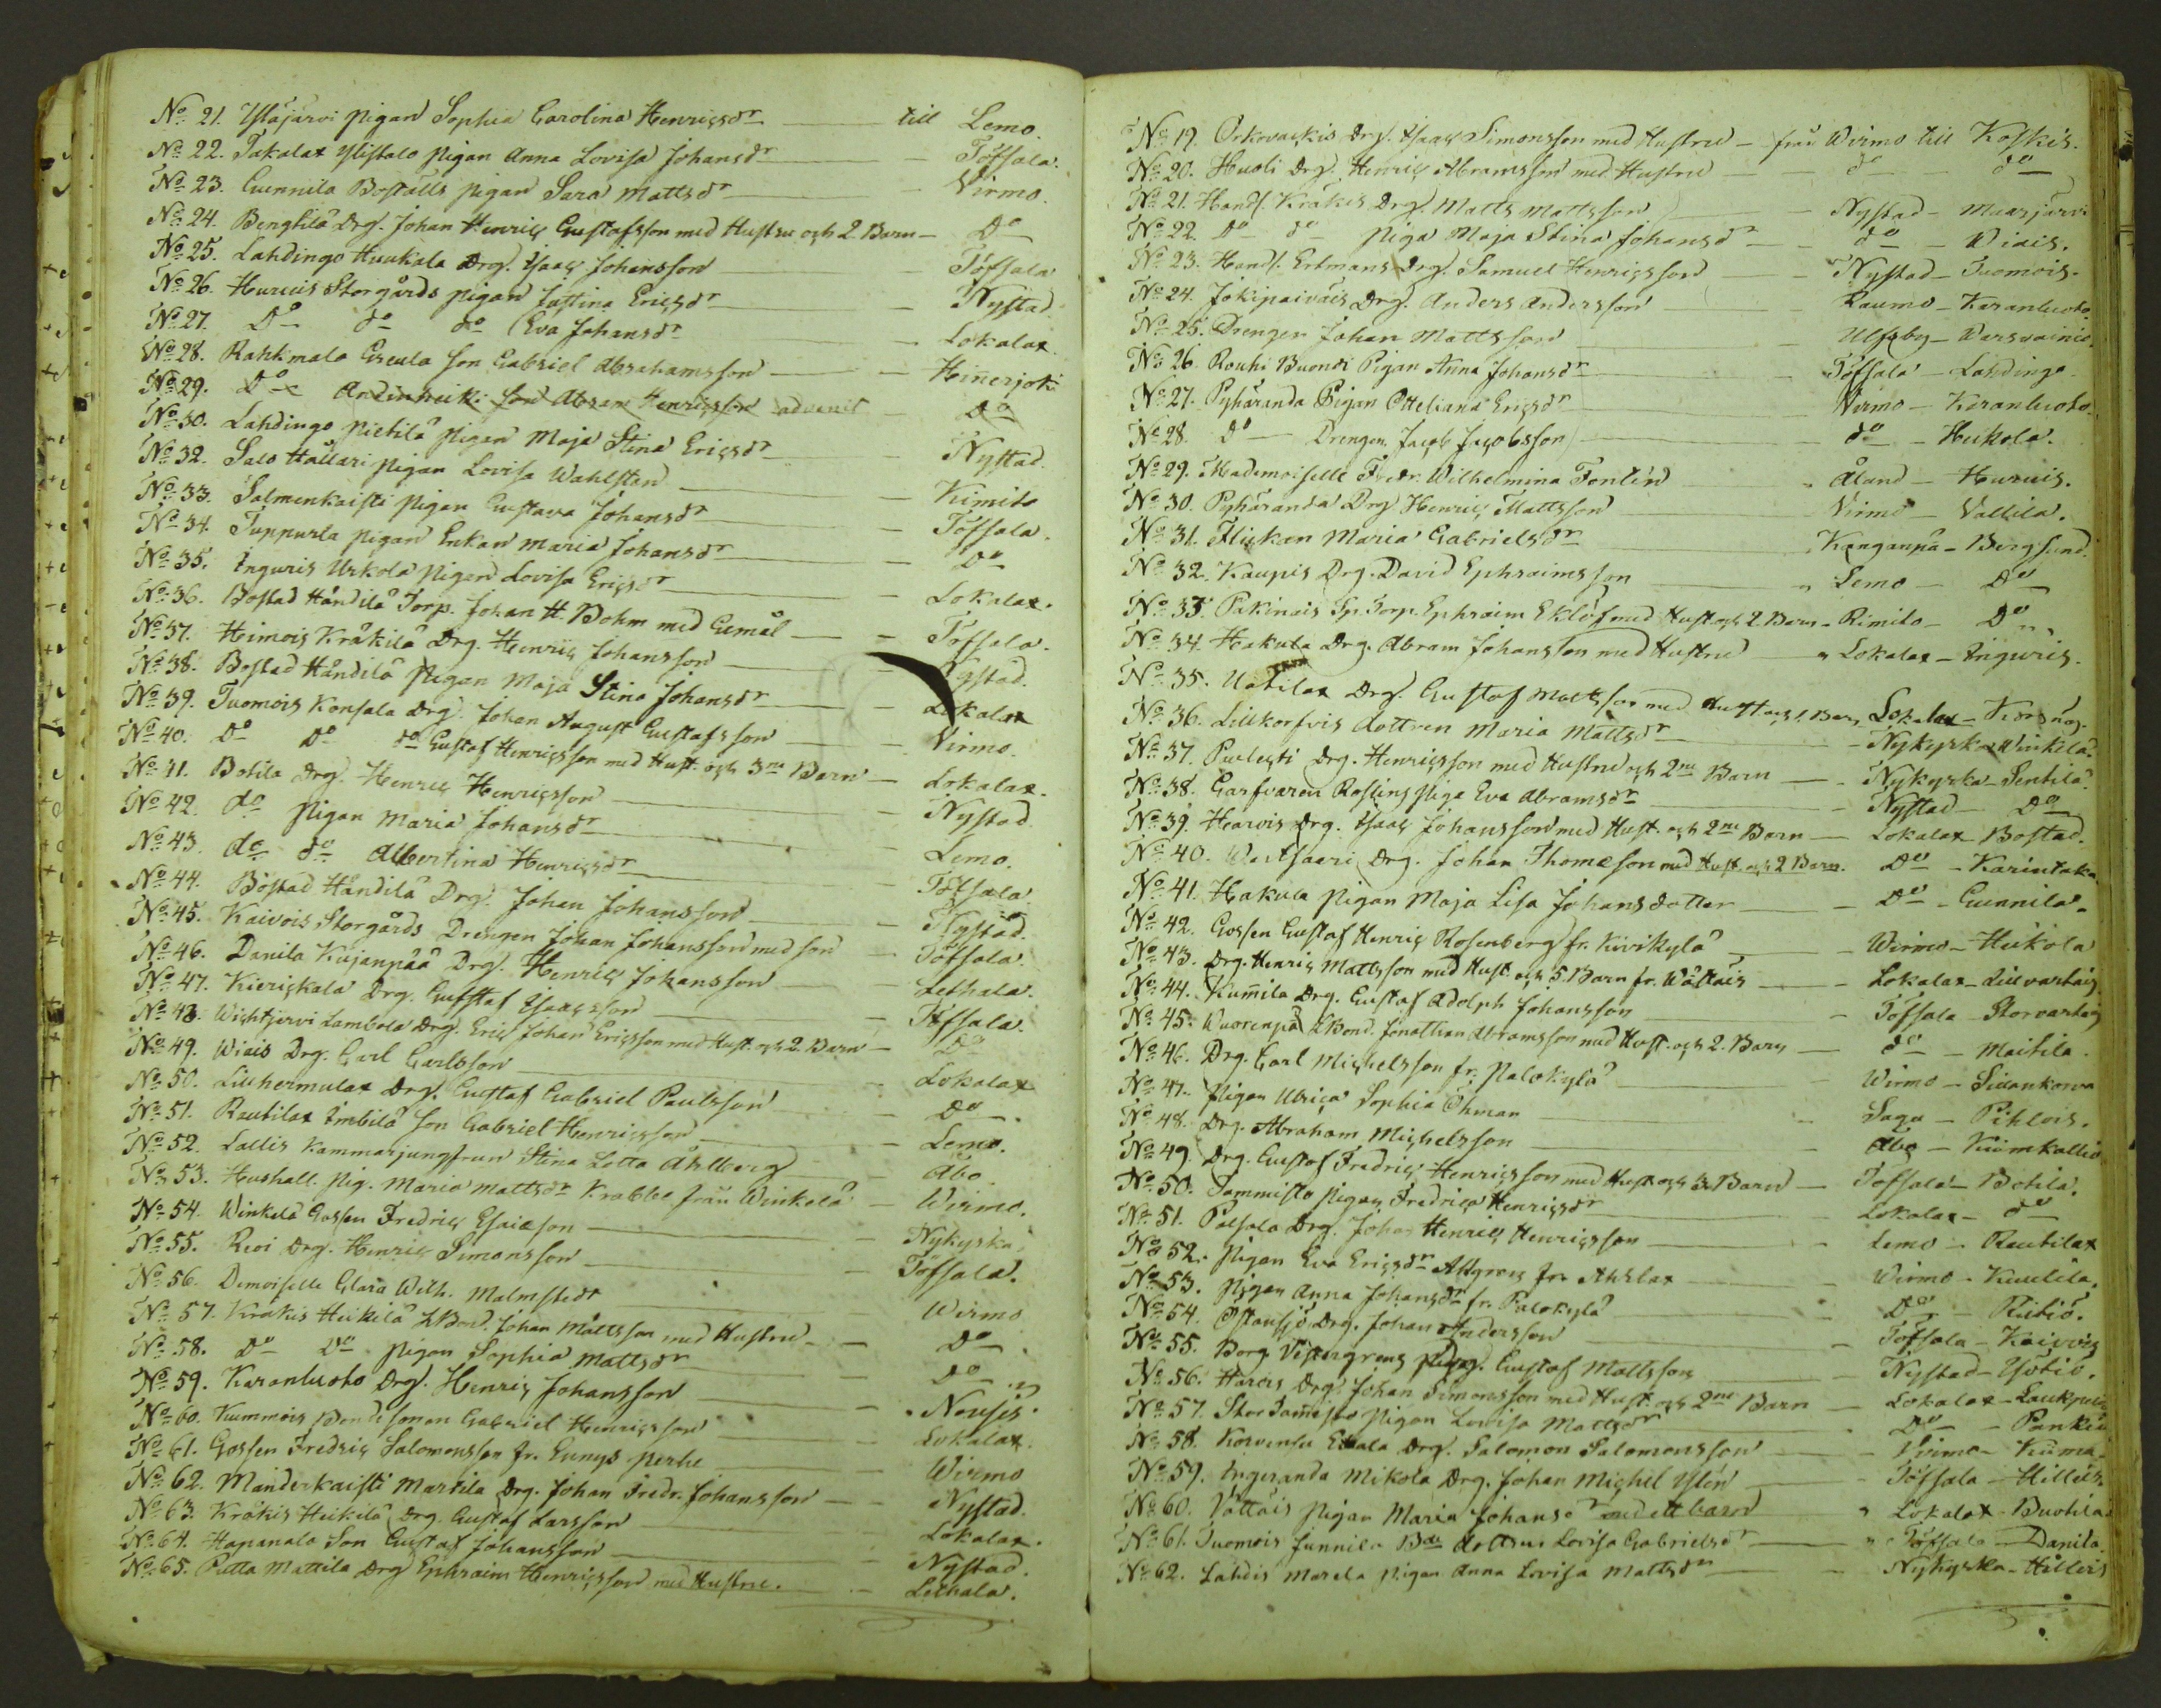 No 21. Yläjärvi pigan Sophia Carolina Henricsdr — till Lemo.
No 22. Takalax Ylistalo pigan Anna Lovisa Johansdr — Töfsala.
No 23. Gunnila Boställs pigan Sara Mattsdr — Virmo.
No 24. Bengtilä Drg. Johan Henric Gustafsson med Hustru och 2 Barn — Do
No 25. Lahdingo Huukala Drg. Isaac Johansson — Töfsala
No 26. Hurnis Storgårds pigan Justina Ericsdr — Nystad.
No 27. Do do do Eva Johansdr — Lokalax.
No 28. Rahkmala Greula son Gabriel Abrahamsson — Hinnerjoki
No 29. Do Anduhreiki son Abram Henricsson — Do
No 30. Lahdingo Pietilä pigan Maja Stina Ericsdr — Nystad.
No 32. Salo Hällari pigan Lovisa Wahlsten — Kimito
No 33. Salmenkaisti pigan Gustava Johansdr — Töfsala.
No 34. Tuppurla pigan Enkan Maria Johansdr — Do
No 35. Inguris Uskola pigan Lovisa Ericsdr — Lokalax.
No 36. Bostad Händilä Torp. Johan H. Bohm med Gemål — Töfsala.
No 37. Heimois Kräkilä Drg. Henric Johansson — Nystad.
No 38. Bostad Händilä Pigan Maja Stina Johansdr — Lokalax
No 39. Tuomois Konsala Drg. Johan August Gustafsson — Virmo.
No 40. Do Do do Gustaf Henricsson med Hust. och 3ne Barn — Lokalax.
No 41. Bohila Drg. Henric Henricsson — Nystad
No 42. do Pigan Maria Johansdr — Lemo.
No 43. do do Albertina Henricsdr — Töfsala.
No 44. Bostad Händilä Drg. Johan Johansson — Nystad.
No 45. Kaivois Storgårds Drengen Johan Johansson med son — Töfsala.
No 46. Danila Kujanpää Drg. Henric Johansson — Lethala.
No 47. Kierickala Drg. Gustaf Isaacsson — Töfsala.
No 48. Wichtjervi Lambola Drg. Eric Johan Ericsson med Hust. och 2. Barn — Do
No 49. Wiais Drg. Carl Carlsson — Lokalax
No 50. Lillhermulax Drg. Gustaf Gabriel Paulsson — Do
No 51. Rautilax Imbilä son Gabriel Henricsson — Lemo.
No 52. Lallis Kammarjungfrun Stina Lotta Åhlberg — Åbo.
No 53. Hushåll. Pig. Maria Mattsdr Krabbe från Winkelä — Wirmo.
No 54. Winkelä Gossen Fredric Esaiæson — Nykyrka.
No 55. Reoi Drg. Henric Simonsson — Töfsala.
No 56. Demoiselle Clara Wilh. Malmstedt — Wirmo
No 57. Kräkis Heikilä LBond. Johan Mattsson med Hustru — Do
No 58. Do Do pigan Sophia Mattsdr — Do
No 59. Karanluoto Drg. Henric Johansson — Nousis.
No 60. Kummois Bondesonen Gabriel Henricsson — Lokalax.
No 61. Gossen Fredric Salomonsson fr. Eunys perhe — Wirmo
No 62. Männderkaisti Martila Drg. Johan Fredr. Johansson — Nystad.
No 63. Kräkis Heikilä Drg. Gustaf Larsson — Lokalax.
No 64. Hapanala Son Gustaf Johansson — Nystad.
No 65. Putta Mattila Drg Ephraim Henricsson med Hustru. — Lethala.
No 19. Orkovackis Drg. Isaac Simonsson med Hustru — från Wirmo till Koskis.
No 20. Huoli Drg. Henric Abramsson med Hustru — do do
No 21. Handl. Kräkis Drg. Matts Mattsson — Nystad — Maarjärvi
No 22. Do do Piga Maja Stina Johansdr — do — Wiais.
No 23. Handl. Ertmans Drg. Samuel Henricsson — Nystad — Tuomois.
No 24. Jokipaiväis Drg. Anders Andersson — Raumo — Karanluoto.
No 25. Drengen Johan Mattsson — Ulfsby — Varsvainio.
No 26. Rouhi Buondi Pigan Anna Johansdr — Töfsala — Lahdingo.
No 27. Pyhäranda Pigan Otteliana Ericsdr — Virmo — Karanluoto.
No 28. Do — Drengen Jacob Jacobsson — do — Heikola.
No 29. Mademoiselle Fredr. Wilhelmina Forslin — Åland — Hurnis.
No 30. Pyhäranda Drg Henric Mattsson — Virmo — Vallila.
No 31. Flickan Maria Gabrielsdr — Kanganpä — Bergsund.
No 32. Kaupis Drg. David Ephraimsson — Lemo — Do
No 33. Pakinais Sp. Torp. Ephraim Eklöf med Hust. och 2. Barn — Rimito — Do
No 34. Hakula Drg. Abram Johansson med Hustru — Lokalax — Inguris.
No 35. Uotilax Drg. Gustaf Mattsson med Hust. och 1. Barn — Lokalax
No 36. Lillkorfvis dottren Maria Mattsdr — Nykyrka — Winkilä.
No 37. Puolesti Drg. Henricsson med Hustru och 2ne Barn — Nykyrka — Sentilä.
No 38. Garfvaren Roslins piga Eva Abramsdr — Nystad — Do
No 39. Hearois Drg. Isaac Johansson med Hust. och 2ne Barn — Lokalax — Bostad.
No 40. Wartsaari Drg. Johan Thomæson med Hust. och 2 Barn. Do — Karintaka
No 41. Hakula Pigan Maja Lisa Johansdotter — Do — Gunnila.
No 42. Gossen Gustaf Henric Rosenberg fr. Kivikylä — Wirmo — Heikola
No 43. Drg. Henric Mattsson med Hust. och 5. Barn fr. Wällais — Lokalax — Lillvartais
No 44. Kumila Drg. Gustaf Adolph Johansson — Töfsala — Storvartais
No 45. Vuorenpä LBond. Jonathan Abramsson med Hust. och 2. Barn — do — Maitila.
No 46. Drg. Carl Michelsson fr. Palokylä — Wirmo — Siuankorva
No 47. Pigan Ulrica Sophia Öhman — Sagu — Pihlois.
No 48. Drg. Abraham Michelsson — Åbo — Kiimkallio
No 49 Drg. Gustaf Fredric Henricsson med Hust. och 3. Barn — Töfsala — Bohila.
No 50. Tammisto Pigan Fredrica Henricsdr — Lokalax — do
No 51. Palsala Drg. Johan Henric Henricsson — Lemo — Rautilax
No 52. Pigan Eva Ericsdr Allgren fr. Ahlax — Wirmo — Kuulila.
No 53. Pigan Anna Johansdr fr. Palokylä — Do — Riitiö.
No 54. Östansjö Drg. Johan Andersson — Töfsala — Kaivois
No 55. Borg Vestergrens Drg. Gustaf Mattsson — Nystad — Ysötiö.
No 56. Harers Drg. Johan Simonsson med Hust. och 2ne Barn — Lokalax
No 57. Stor Tamisto Pigan Lovisa Mattsdr — Do
No 58. Korvensu Ettala Drg. Salomon Salomonsson — Virmo — Kiima
No 59. Ingeranda Mikola Drg. Johan Michel Yslén — Töfsala — Hilleis
No 60. Vättäis Pigan Maria Johansdr med ett barn — Lokalax — Buohila
No 61. Tuomois Junnila Bds dottren Lovisa Gabrielsdr — Töfsala — Danila.
No 62. Lahdis Marela Pigan Anna Lovisa Mattsdr — Nykyrka — Hilleis